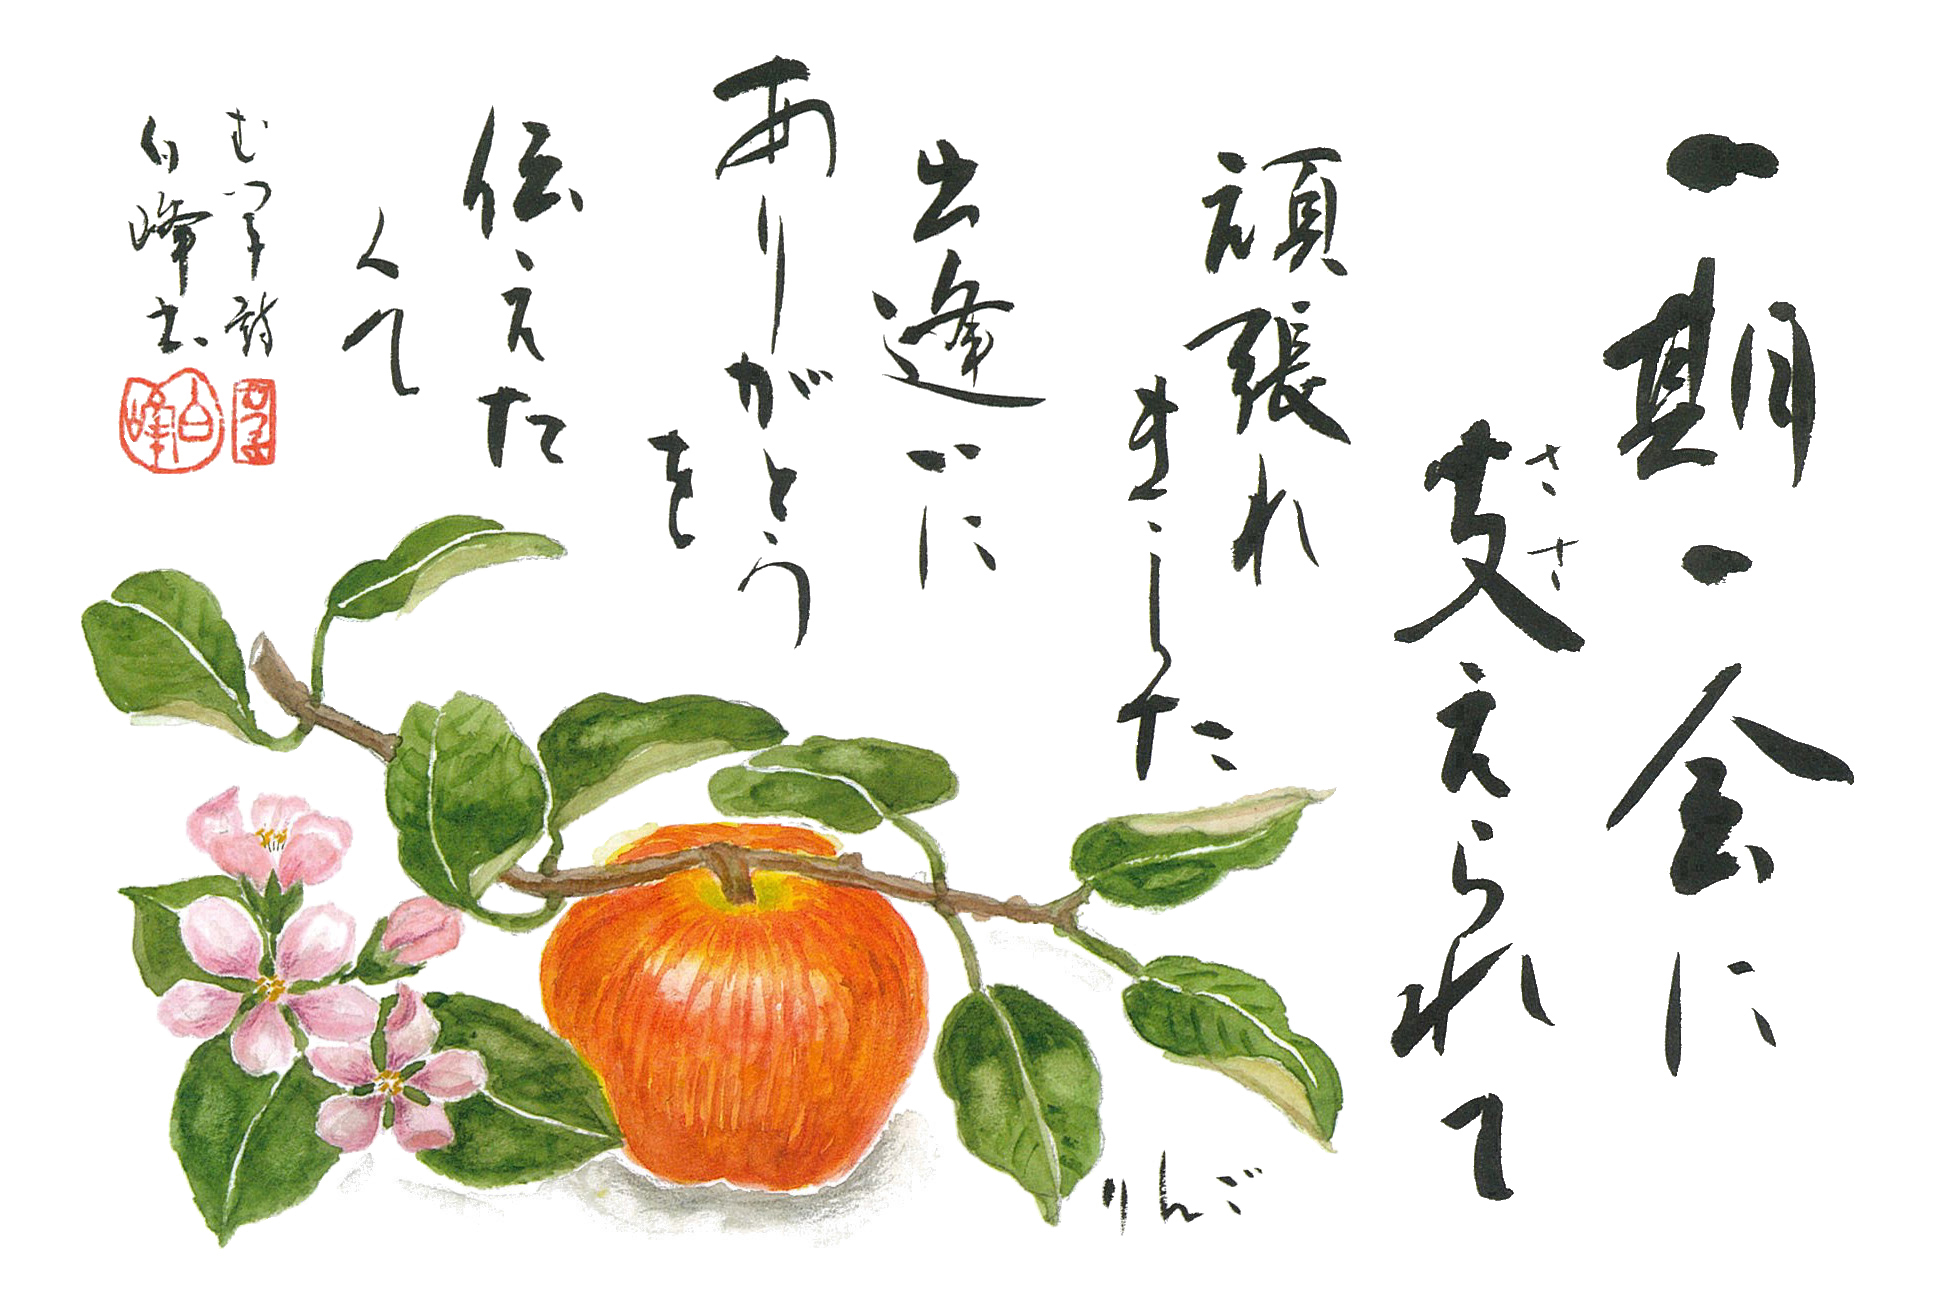 一期一会に
支えられて
ささ
頑張れ
ました
出逢いに
ありがとう
を
伝えた
くて
詩
白峰書
白峰
りんご